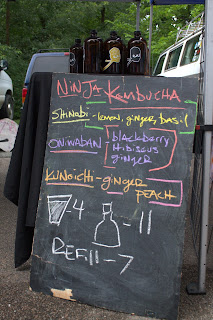 Ninja Kombucha
Shinobi - lemon, ginger, basil
Oniwaban - blackberry
Hibiscus
ginger
Kunoichi - ginger
peach
4
11
Refill - 7